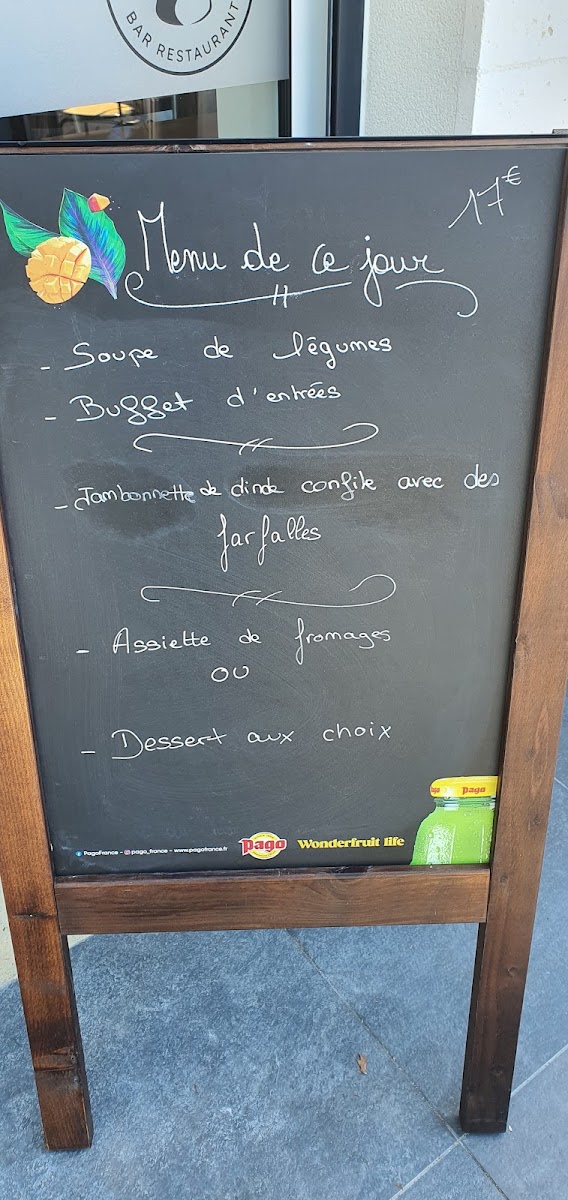 BAR RESTAURANT
17€
Menu de ce jour
- Soupe de légumes
- Buffet d'entrées
- Jambonnette de dinde confite avec des
farfalles
- Assiette de fromages
OU
- Dessert aux choix
pago
PagoFrance - pago_france - www.pagofrance.fr
pago
Wonderfruit life